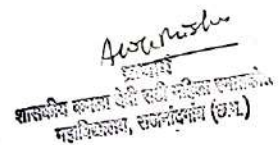 प्राचार्य
शासकीय कमला देवी राठी महिला स्नातको.
महाविद्यालय, राजनांदगांव (छ.ग.)